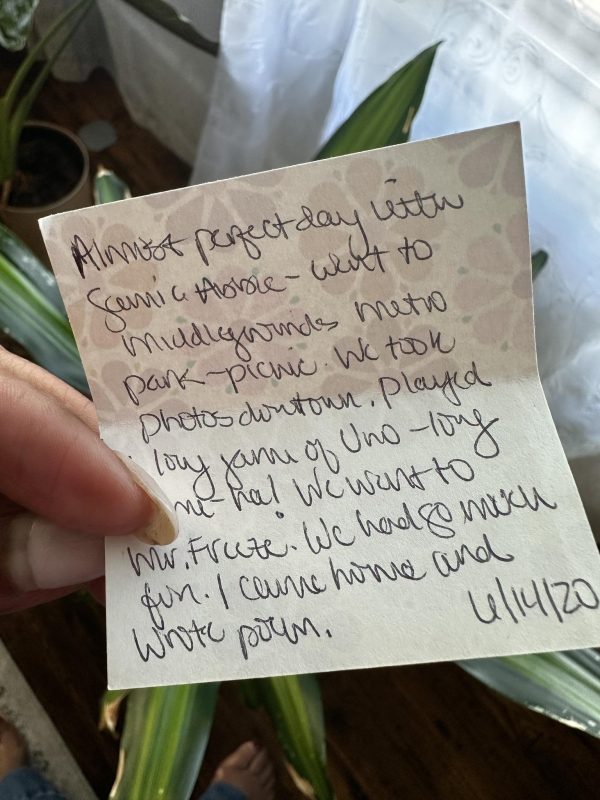 Almost perfect day with
- went to
Middlegrounds metro
park - picnic. We took
photos downtown. Played
long game of Uno - long
- ha! We went to
Mr. Freeze. We had so much
fun. I came home and
wrote poem.
6/14/20